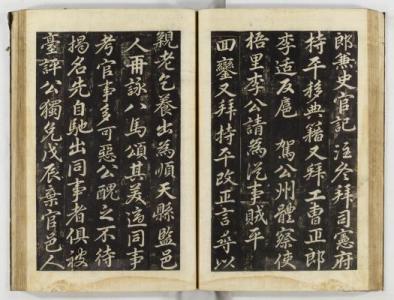 郎兼史官記注尋拜司憲府
持平移典籍又拜工曹正郎
李适反扈 駕公州體察使
梧里李公請為從事賊平
回鑾又拜持平改正言尋以
親老乞養出為順天縣監邑
人詠八馬頌其美適同事
考官事多可惡公醜之不待
揭名先自馳出同事者俱被
臺評公獨免戊辰棄官邑人